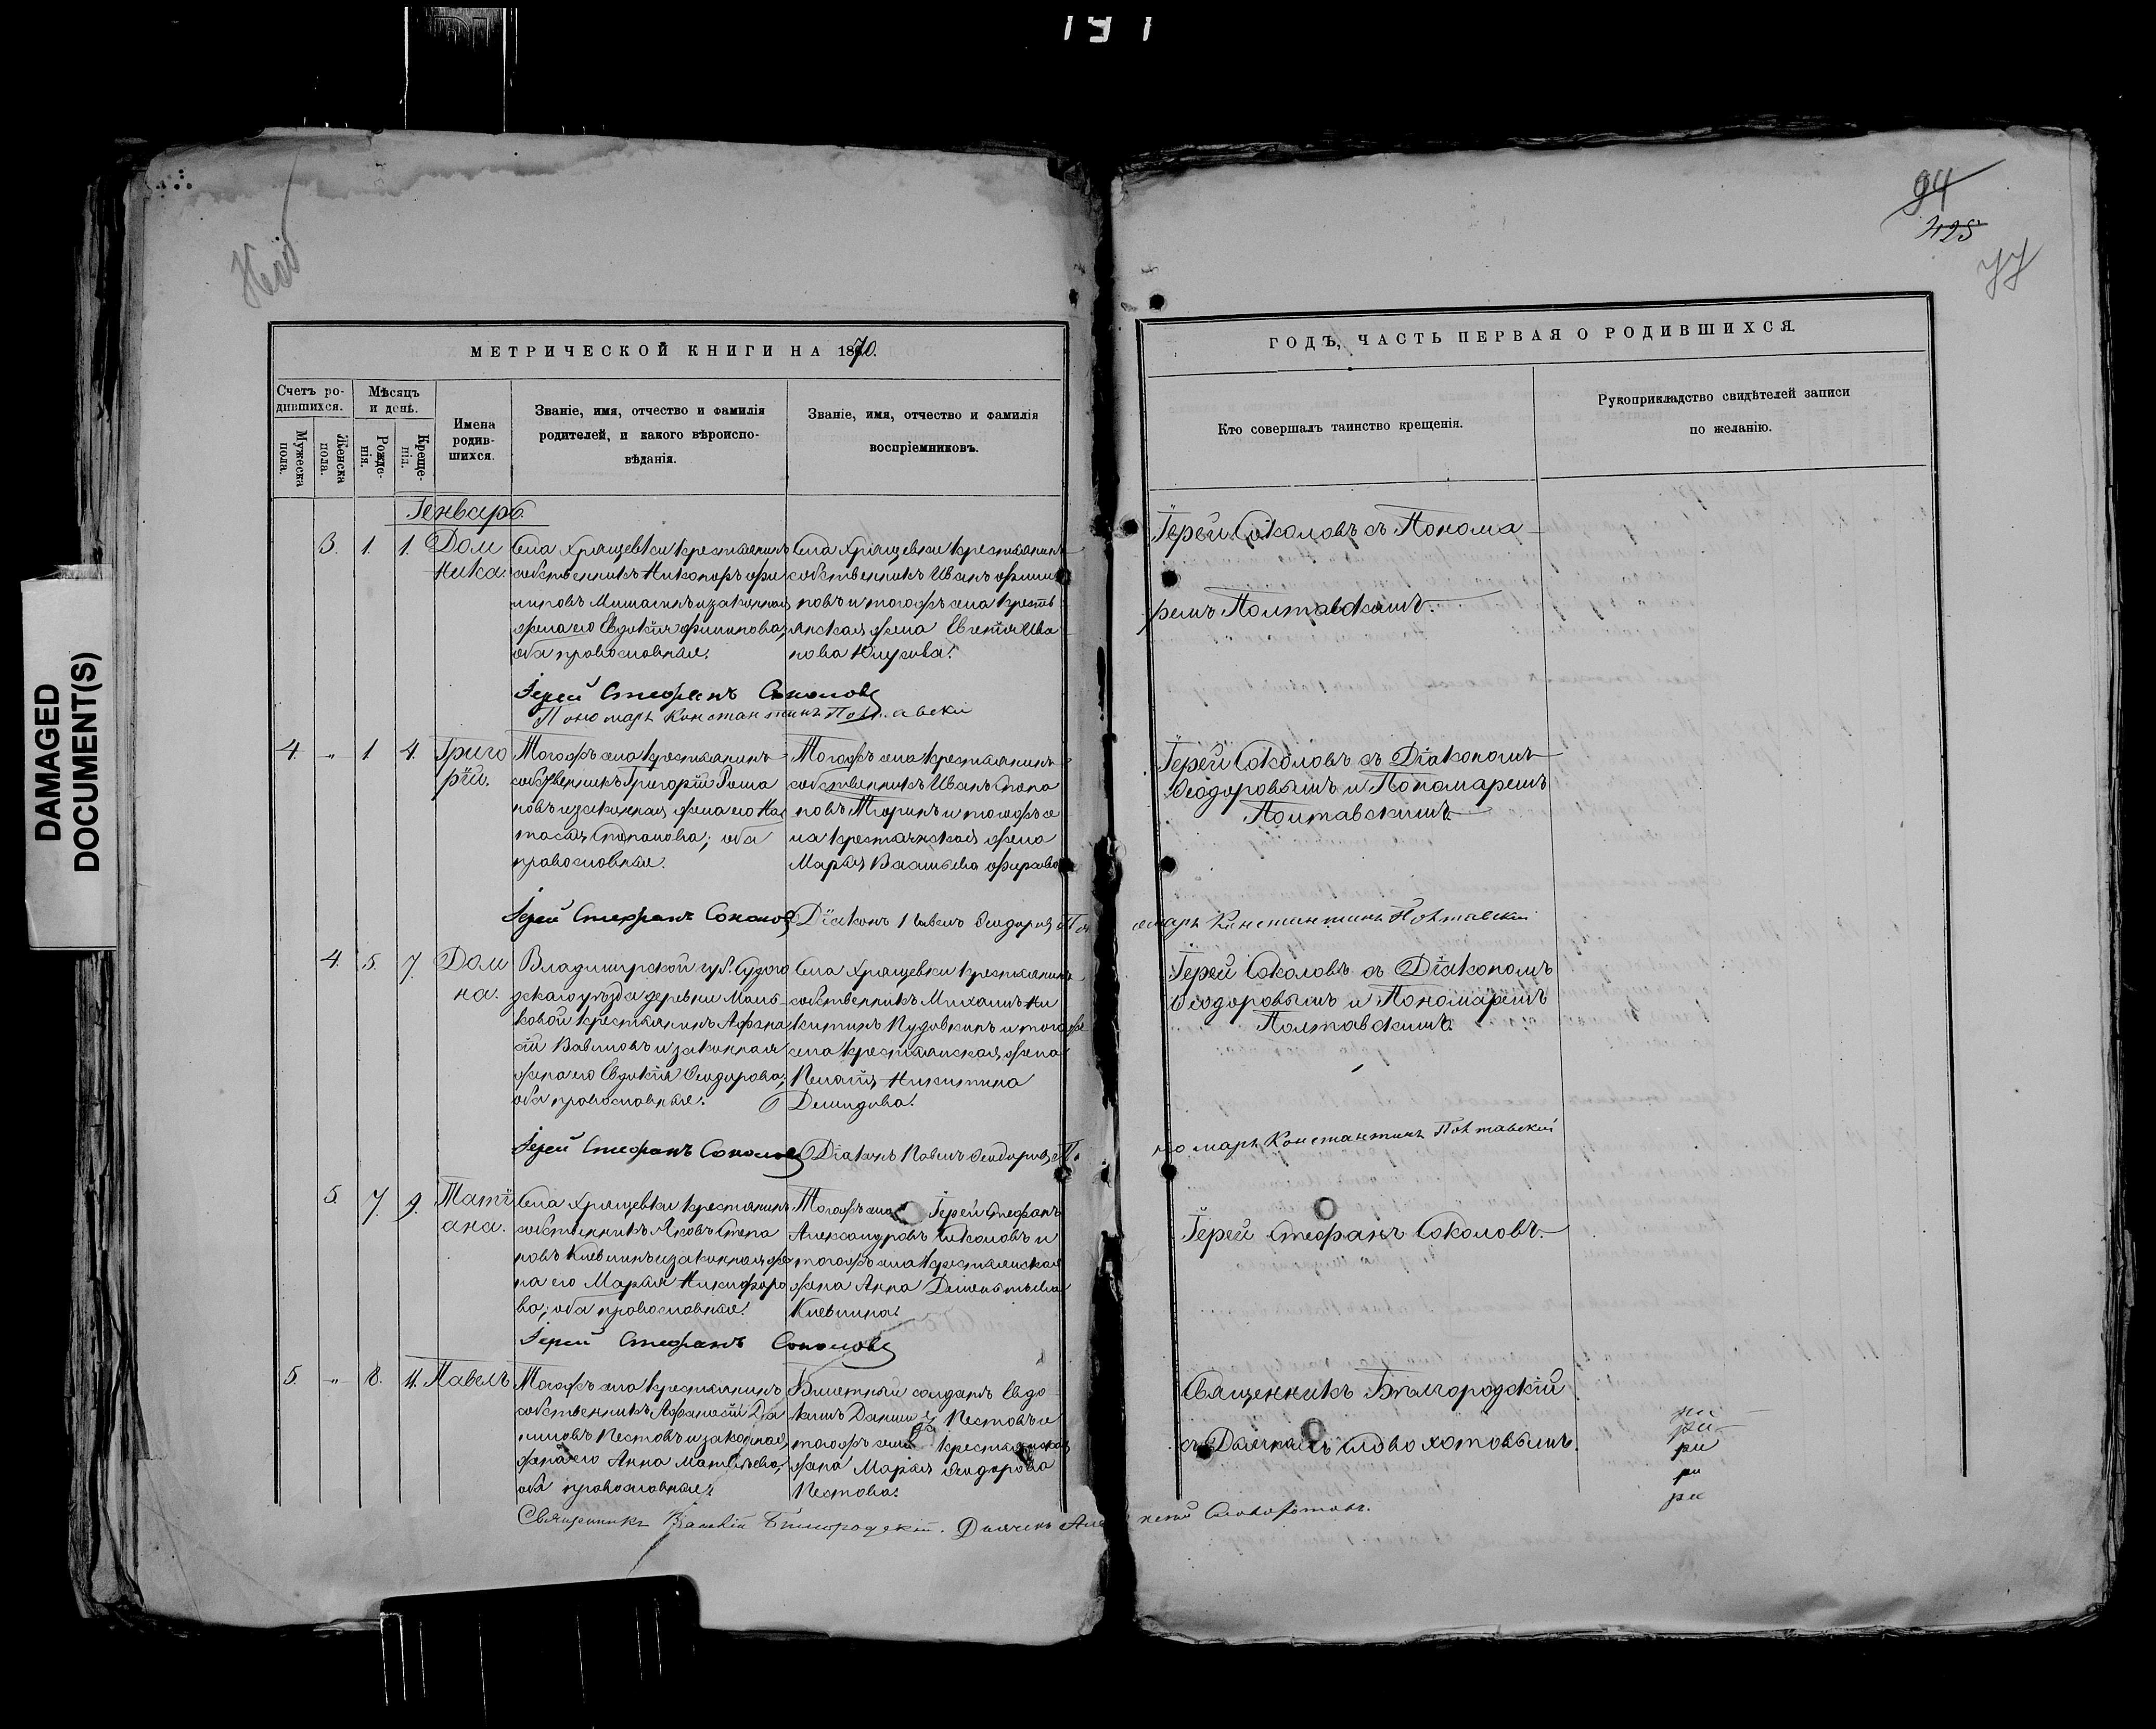 191
DAMAGED
DOCUMENT(S)
94
425
77
МЕТРИЧЕСКОЙ КНИГИ НА 1870.
Счетъ ро-
дившихся.
Мужеска
пола.
Женска
пола.
Мѣсяцъ
и день.
Рожде-
нія.
Креще-
нія.
Имена
родив-
шихся.
Званіе, имя, отчество и фамилія
родителей, и какого вѣроиспо-
вѣданія.
Званіе, имя, отчество и фамилія
воспріемниковъ.
ГОДЪ, ЧАСТЬ ПЕРВАЯ О РОДИВШИХСЯ.
Кто совершалъ таинство крещенія.
Рукоприкладство свидѣтелей записи
по желанію.
Генварь
3. 1. 1. Дом
ника.
Села Хрящевки крестьянинъ
собственникъ Никаноръ Фи
липовъ Мишагинъ и законная
жена его Евдокія Филипова;
оба православные.
Села Хрящевки крестьянинъ
собственникъ Иванъ Филип
повъ и тогожъ села кресть
янская жена Евгенія Ива
нова
Іерей Соколовъ съ Понома
ремъ Полтавскимъ.
Іерей Стефанъ Соколовъ
Пономарь Константинъ Полтавскій
4. „ 1 4. Григо
рій.
Тогожъ села крестьянинъ
собственникъ Григорій Рома
новъ и законная жена его Нас
тасія Степанова; оба
православные.
Тогожъ села крестьянинъ
собственникъ Иванъ Степа
новъ Тюринъ и тогожъ се
ла крестьянская жена
Марія Васильева
Іерей Соколовъ съ Діакономъ
Ѳеодоровымъ и Пономаремъ
Полтавскимъ.
Іерей Стефанъ Соколовъ Діаконъ Павелъ Ѳеодоровъ Пономарь Константинъ Полтавскій
4. 5. 7. Дом
на.
Владимирской губ. Судого
дскаго уѣзда деревни
крестьянинъ Афана
сій Вавиловъ и законная
жена его Евдокія Ѳеодорова;
оба православные.
Села Хрящевки крестьянинъ
собственникъ Михаилъ Ни
китинъ Пудовкинъ и тогоже
села крестьянская жена
Пелагія Никитина
Демидова.
Іерей Соколовъ съ Діакономъ
Ѳеодоровымъ и Пономаремъ
Полтавскимъ.
Іерей Стефанъ Соколовъ Діаконъ Павелъ Ѳеодоровъ Пономарь Константинъ Полтавскій
5. 7. 9. Таті
ана.
Села Хрящевки крестьянинъ
собственникъ Яковъ Степа
новъ Киевлинъ и законная же
на его Марія Никифоро
ва; оба православные.
Тогожъ села Іерей Стефанъ
Александровъ Соколовъ и
тогожъ села крестьянская
жена Анна Дементьева
Киевлина.
Іерей Стефанъ Соколовъ.
Іерей Стефанъ Соколовъ
5. „ 8. 11. Павелъ
Тогожъ села крестьянинъ
собственникъ Афанасій Да
ниловъ Пестовъ и законная
жена его Анна Матвѣева;
оба православные.
Билетный солдатъ Евдо
кимъ Данилов Пестовъ и
тогожъ села крестьянская
жена Марія Ѳеодорова
Пестова.
Священникъ Бѣлгородскій
съ Дьячкомъ Словохотовымъ.
Священникъ Василій Бѣлгородскій. Дьячекъ Алексей Словохотовъ.